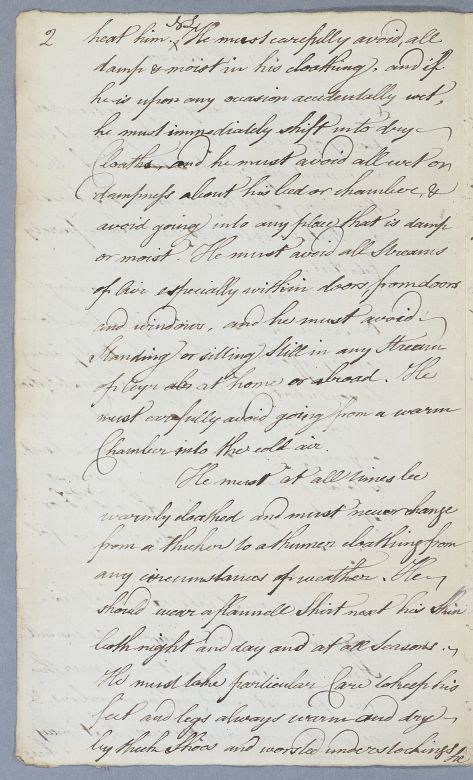 2 heat him. He must carefully avoid, all
damp & moist in his cloathing, and if
he is upon any occasion accidentally wet,
he must immediately shift into dry
Cloaths, and he must avoid all wet or
dampness about his bed or chamber, &
avoid going into any place that is damp
or moist. He must avoid all Streams
of Air especially within doors from doors
and windows, and he must avoid
Standing or sitting still in any Stream
of Air at home or abroad. He
must carefully avoid going from a warm
Chamber into the cold air.
He must at all times be
warmly cloathed and must never change
from a thicker to a thinner cloathing from
any circumstances of weather. He
should wear a flannell Shirt next his Skin
both night and day and at all Seasons.
He must take particular Care to keep his
feet and legs always warm and dry
by thick Shoes and worsted understockings